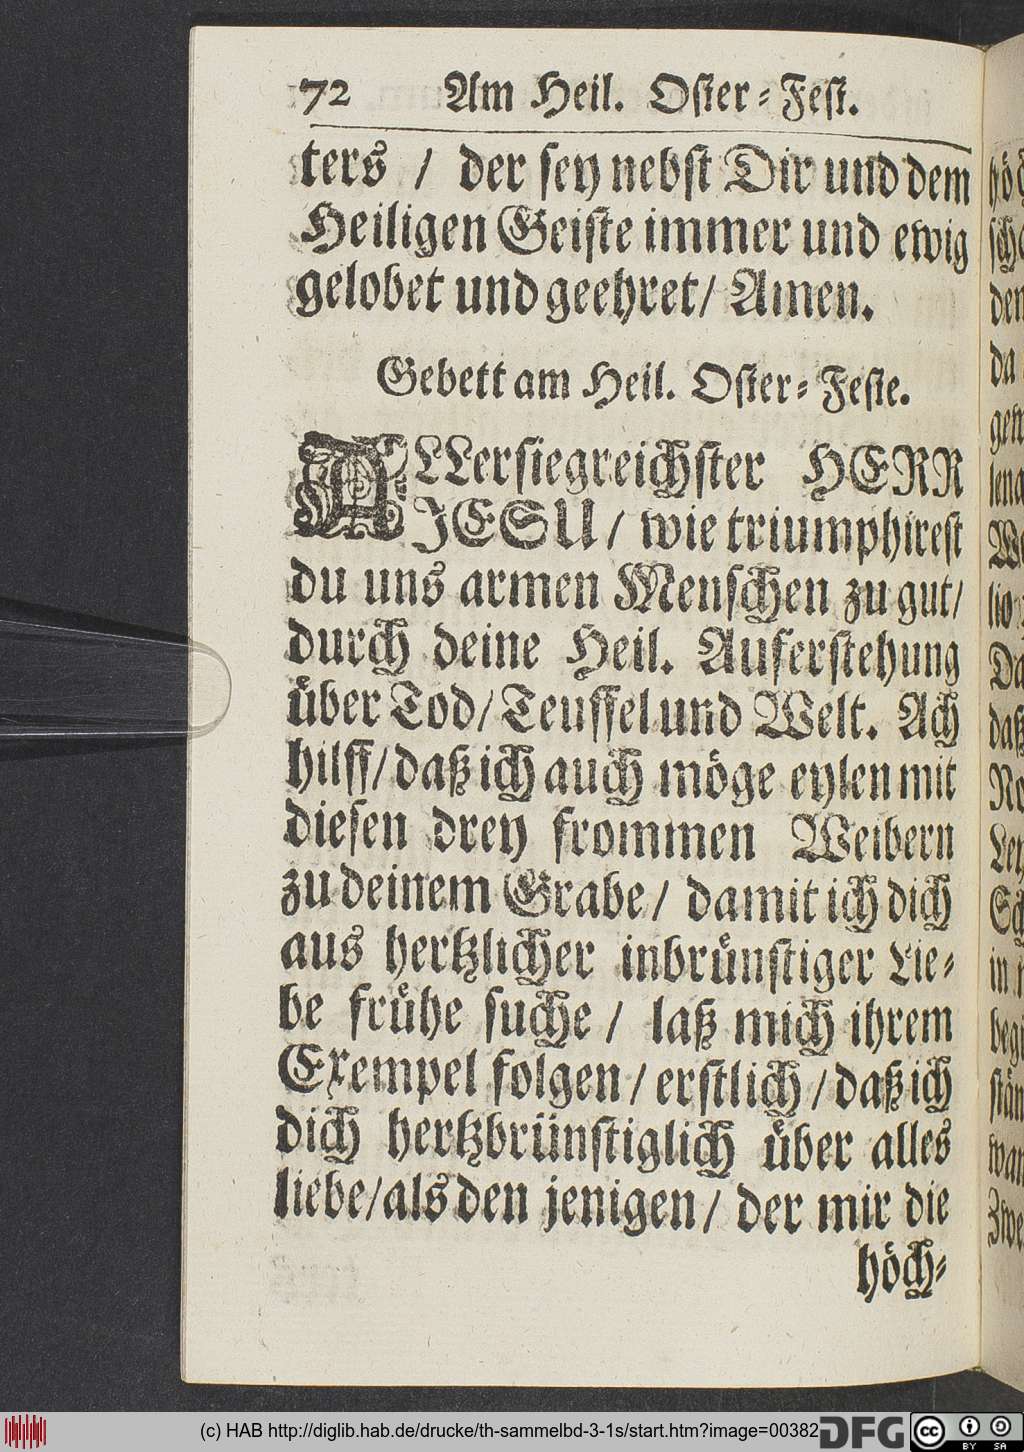 72 Am Heil. Oster-Fest.
ters / der sey nebst Dir und dem
Heiligen Geiste immer und ewig
gelobet und geehret/ Amen.
Gebett am Heil. Oster-Feste.
ALLersiegreichster HERR
JESU/ wie triumphirest
du uns armen Menschen zu gut/
durch deine Heil. Auferstehung
über Tod/ Teuffel und Welt. Ach
hilff/ daß ich auch möge eylen mit
diesen drey frommen Weibern
zu deinem Grabe/ damit ich dich
aus hertzlicher inbrünstiger Lie-
be frühe suche / laß mich ihrem
Exempel folgen/ erstlich/ daß ich
dich hertzbrünstiglich über alles
liebe/ als den jenigen/ der mir die
höch-
(c) HAB http://diglib.hab.de/drucke/th-sammelbd-3-1s/start.htm?image=00382
DFG
cc BY SA